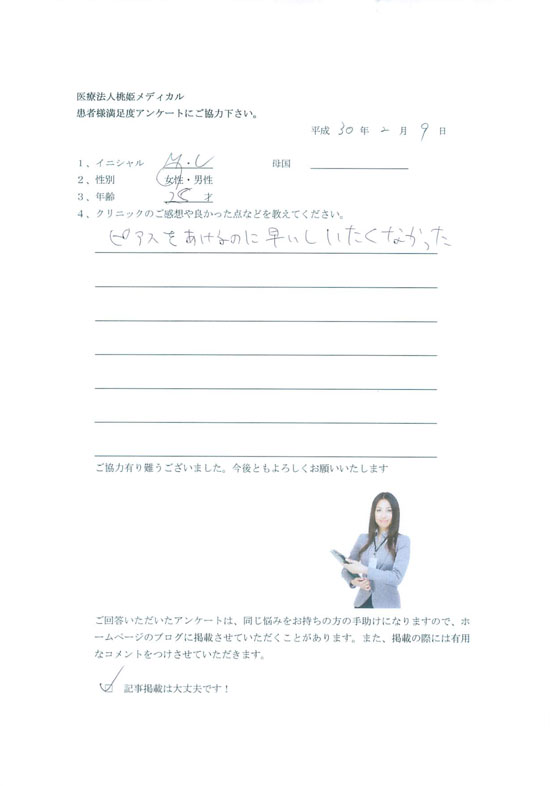 医療法人桃姫メディカル
患者様満足度アンケートにご協力下さい。
平成 30 年 2 月 9 日
1、イニシャル M・L 母国
2、性別 女性・男性
3、年齢 25 才
4、クリニックのご感想や良かった点などを教えてください。
ピアスをあけるのに早いしいたくなかった
ご協力有り難うございました。今後ともよろしくお願いいたします
ご回答いただいたアンケートは、同じ悩みをお持ちの方の手助けになりますので、ホ
ームページのブログに掲載させていただくことがあります。また、掲載の際には有用
なコメントをつけさせていただきます。
☑ 記事掲載は大丈夫です！